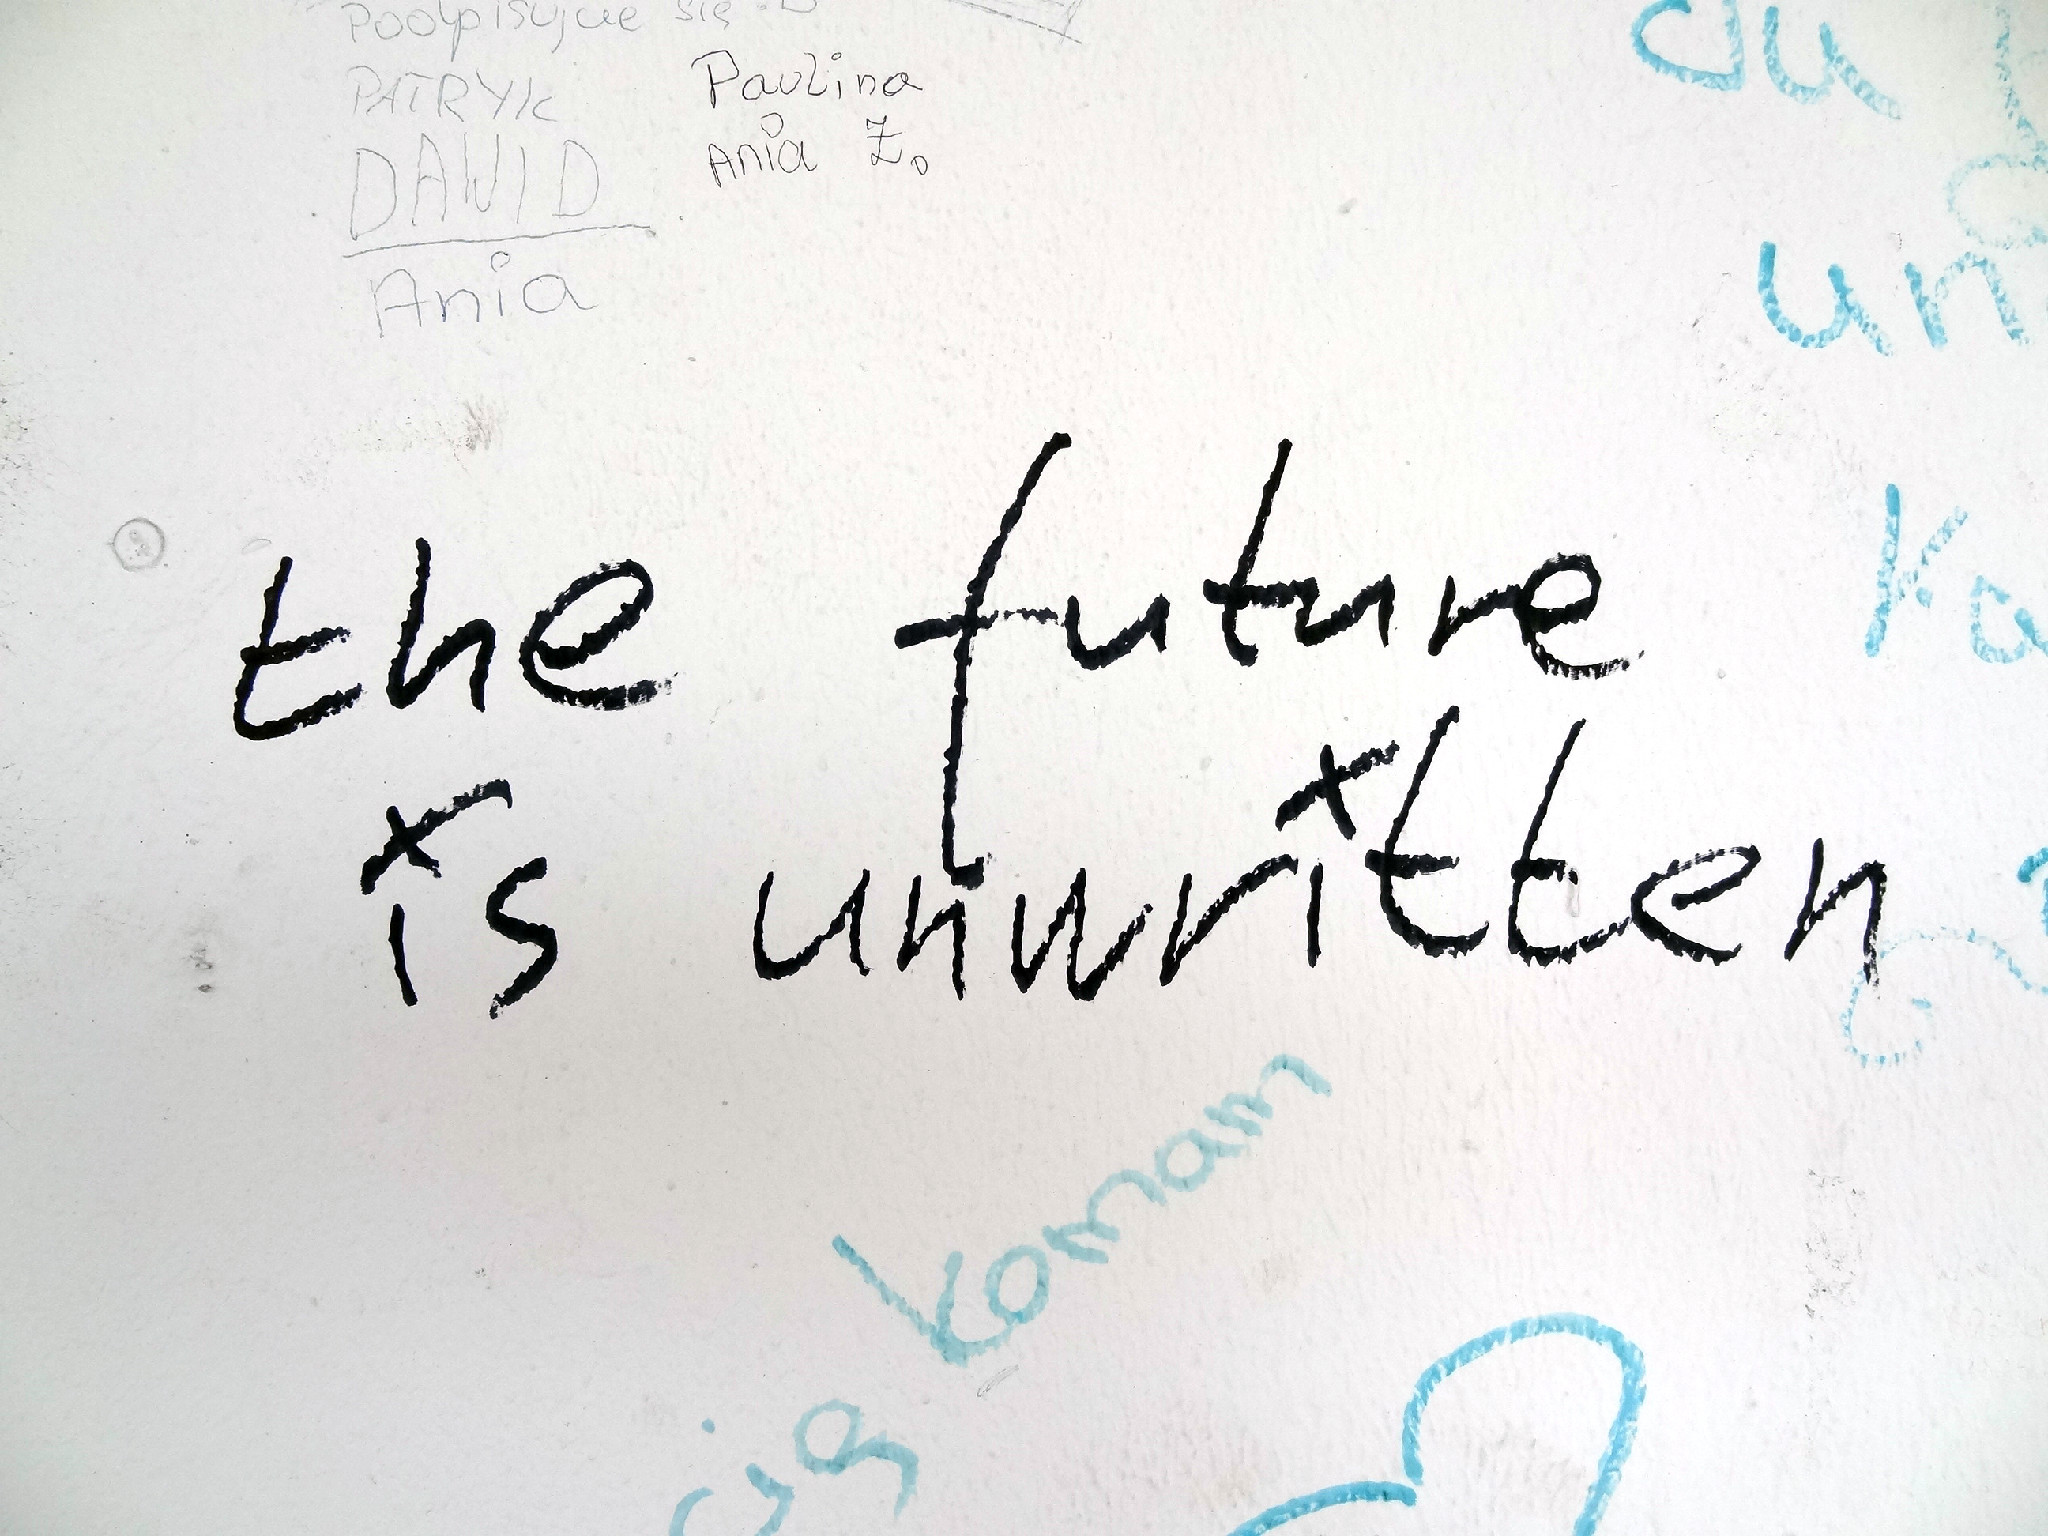 Podpisujcie się :D
PATRYK
DAWID
Ania
Paulina
Ania Z.
the future
is unwritten
się koмam